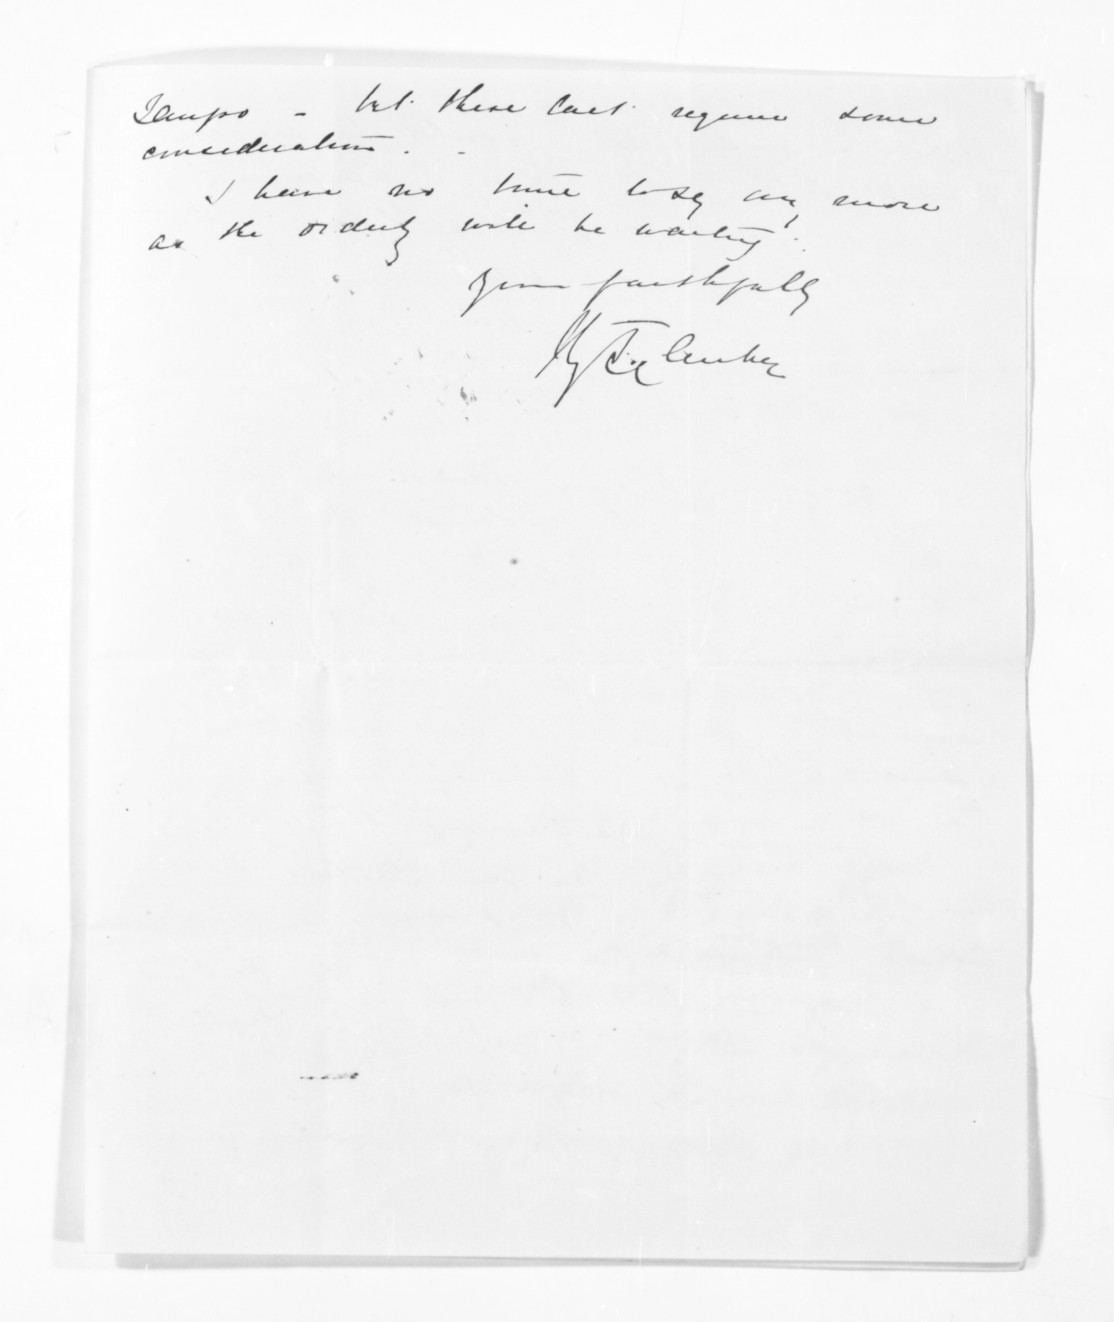 Taupo - but these last require some
consideration. -
I have no time to say any more
as the orderly will be waiting.
Yours faithfully
Hy Tacy Clarke